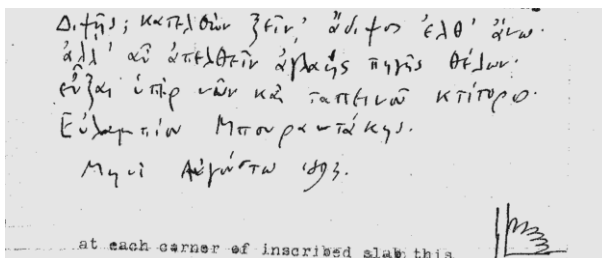 Διψῆς; κατελθὼν ξεῖν' ἄδιψος ἐλθ' ἄνω.
ἀλλ' αὖ ἀπελθεῖν ἀγλαῆς πηγῆς θέλων.
εὖξαι ὑπὲρ νῶν καὶ ταπεινοῦ κτίτορο.
Εὐλαμπίου Μπουραντάκης.
Μηνὶ Αὐγούστω 1893.
at each corner of inscribed slab this